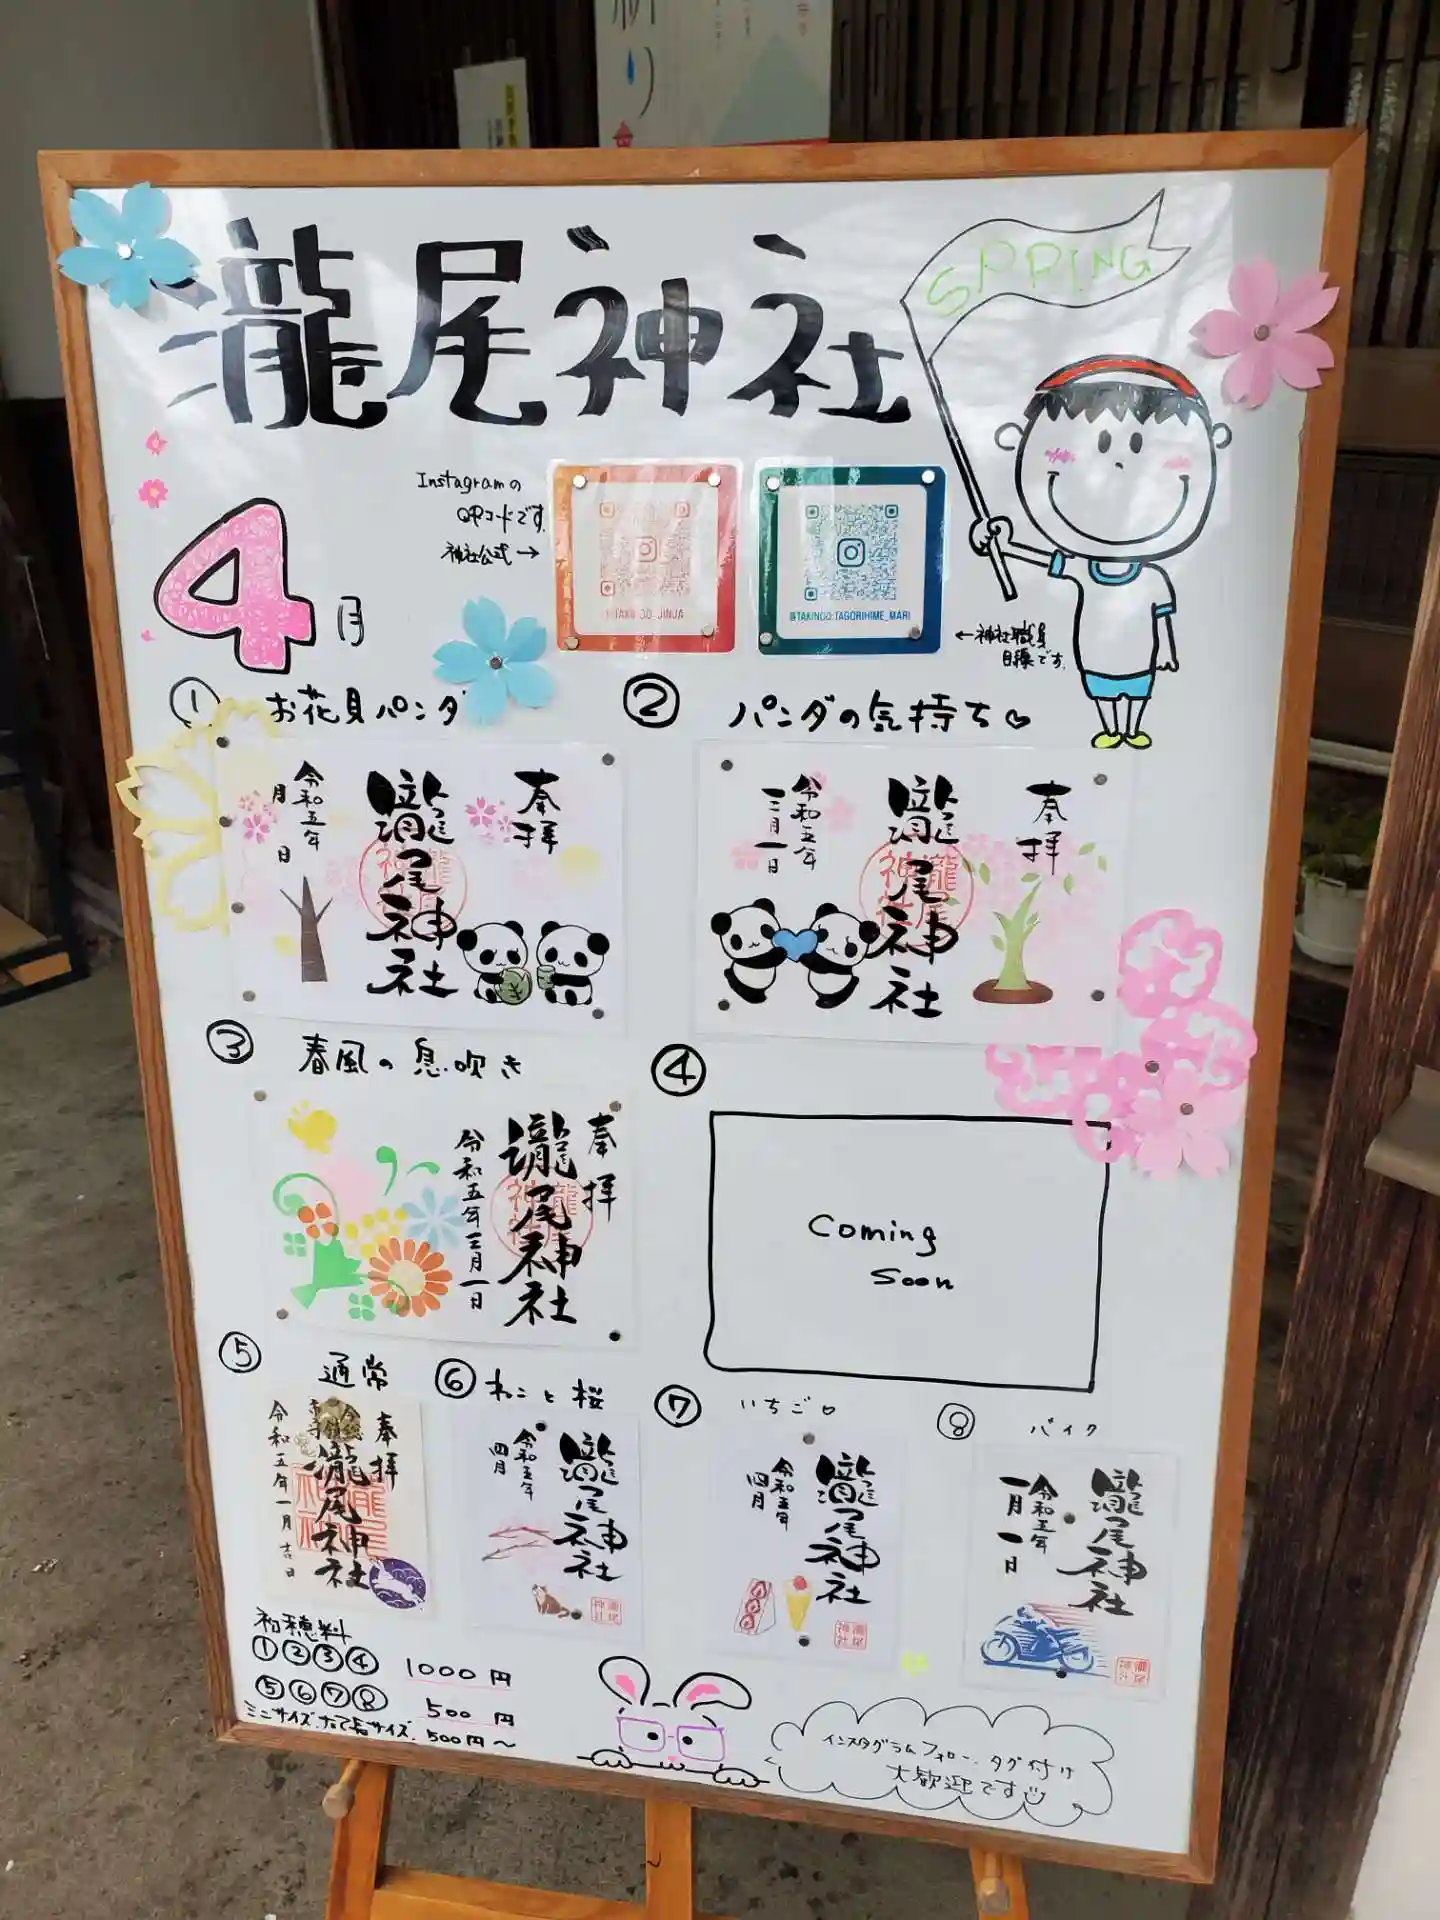 瀧尾神社
SPRING
Instagramの
QRコードです。
神社公式→
@TAKINOO_JINJA
@TAKINOO.TAGORIHIME_MARI
←神社職員
目線です。
4月
① お花見パンダ
奉拝
瀧尾神社
令和五年
月 日
② パンダの気持ち♡
奉拝
瀧尾神社
令和五年
三月一日
③ 春風の息吹き
奉拝
瀧尾神社
令和五年三月一日
④
Coming
Soon
⑤ 通常
奉拝
瀧尾神社
令和五年一月吉日
⑥ ねこと桜
瀧尾神社
令和五年
四月
⑦ いちご♡
瀧尾神社
令和五年
四月
⑧ バイク
瀧尾神社
令和五年
一月一日
初穂料
①②③④ 1000円
⑤⑥⑦⑧ 500円
ミニサイズ、たて長サイズ、500円〜
インスタグラムフォロー、タグ付け
大歓迎です